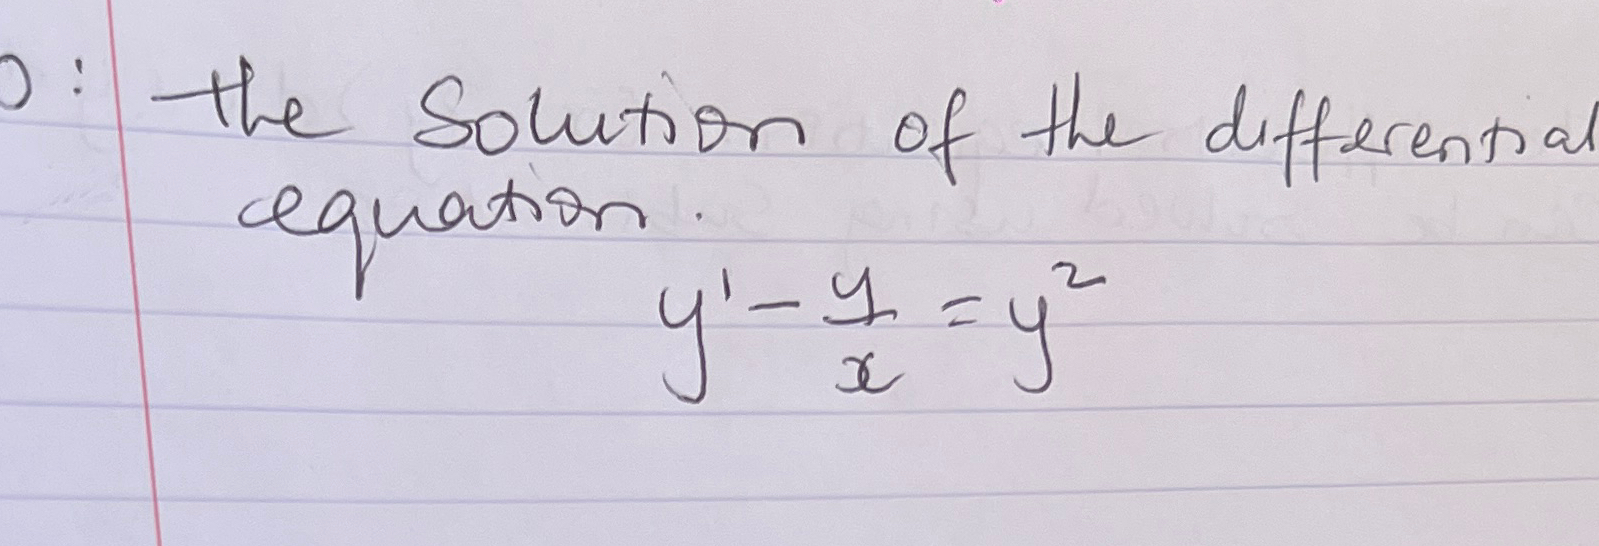 : the Solution of the differential
equation.
y' - y/x = y²